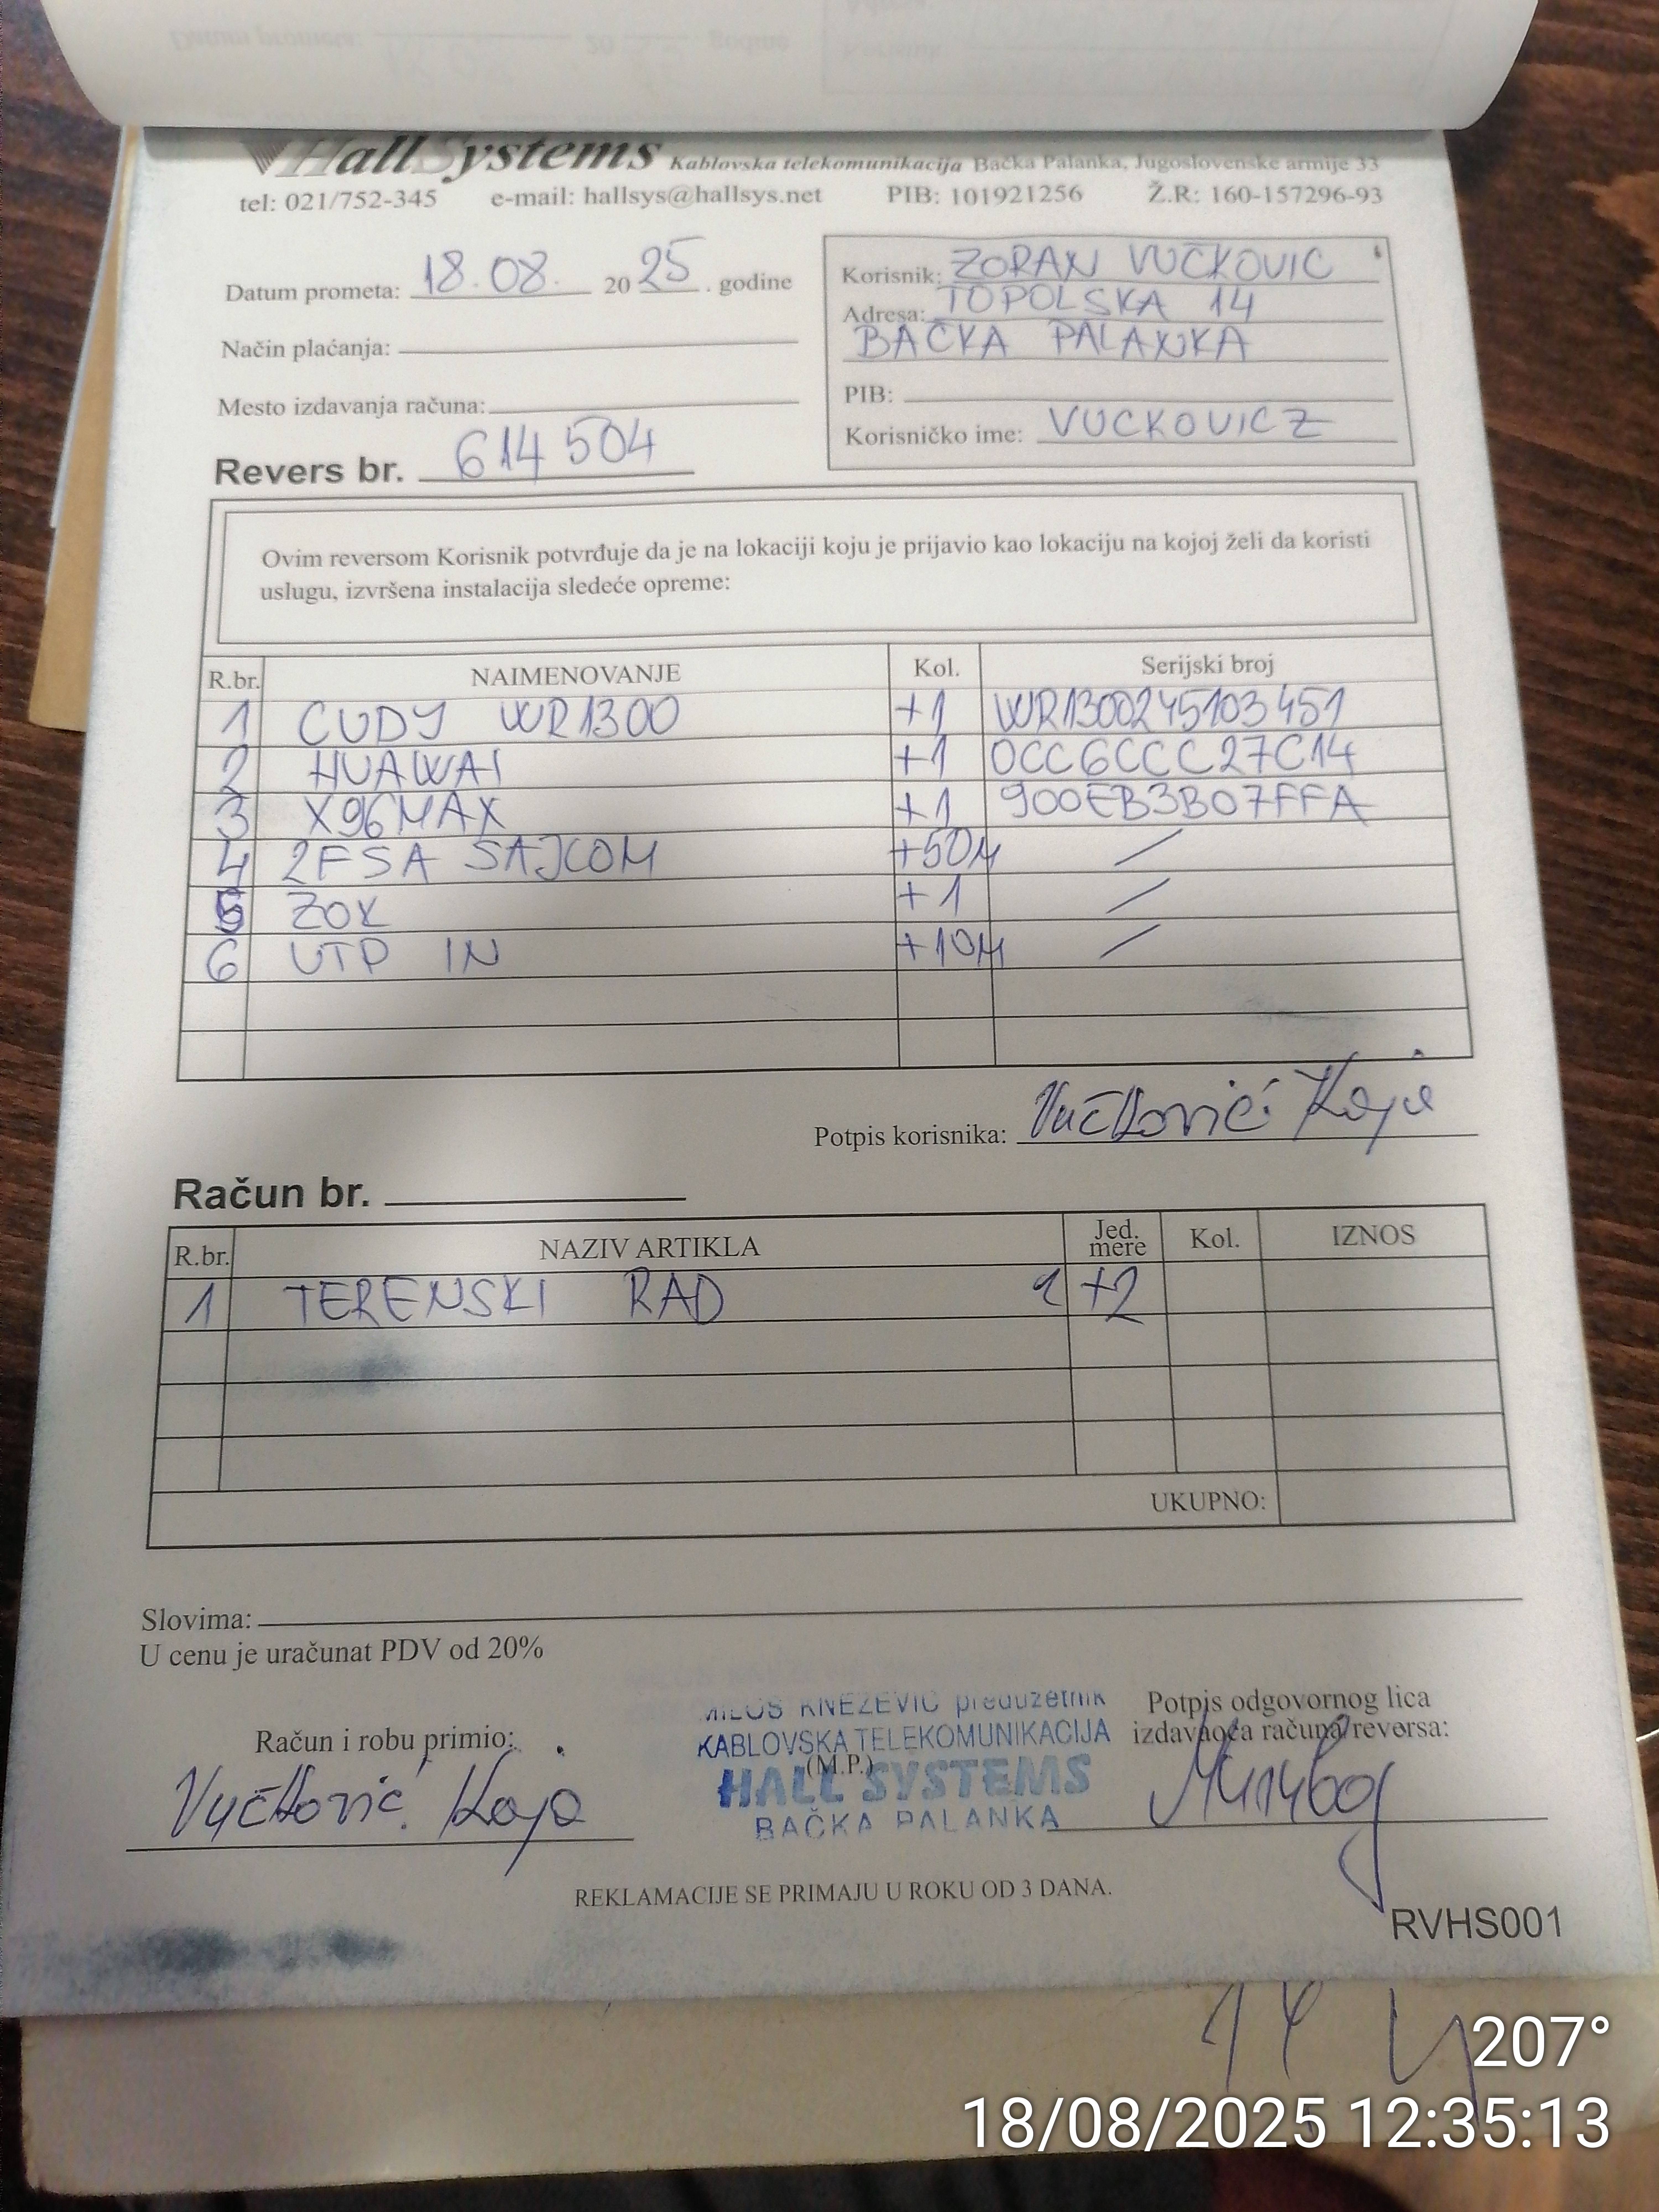 HallSystems Kablovska telekomunikacija Bačka Palanka, Jugoslovenske armije 33
tel: 021/752-345 e-mail: hallsys@hallsys.net PIB: 101921256 Ž.R: 160-157296-93
Datum prometa: 18.08. 2025. godine
Način plaćanja:
Mesto izdavanja računa:
Revers br. 614504
Korisnik: ZORAN VUČKOVIC
Adresa: TOPOLSKA 14
BAČKA PALANKA
PIB:
Korisničko ime: VUCKOVICZ
Ovim reversom Korisnik potvrđuje da je na lokaciji koju je prijavio kao lokaciju na kojoj želi da koristi
uslugu, izvršena instalacija sledeće opreme:
R.br. NAIMENOVANJE Kol. Serijski broj
1 CUDY WR1300 +1 WR1300245103451
2 HUAWAI +1 0CC6CCC27C14
3 X96MAX +1 900EB3B07FFA
4 2FSA SAJCOM +50M /
5 ZOK +1 /
6 UTP IN +10M /
Potpis korisnika: Vučković Kaja
Račun br.
R.br. NAZIV ARTIKLA Jed. mere Kol. IZNOS
1 TERENSKI RAD +2
UKUPNO:
Slovima:
U cenu je uračunat PDV od 20%
Račun i robu primio:
Vučković Kaja
MILOŠ KNEŽEVIĆ preduzetnik
KABLOVSKA TELEKOMUNIKACIJA
(M.P.)
HALL SYSTEMS
BAČKA PALANKA
Potpis odgovornog lica
izdavaoca računa/reversa:
REKLAMACIJE SE PRIMAJU U ROKU OD 3 DANA.
RVHS001
207°
18/08/2025 12:35:13